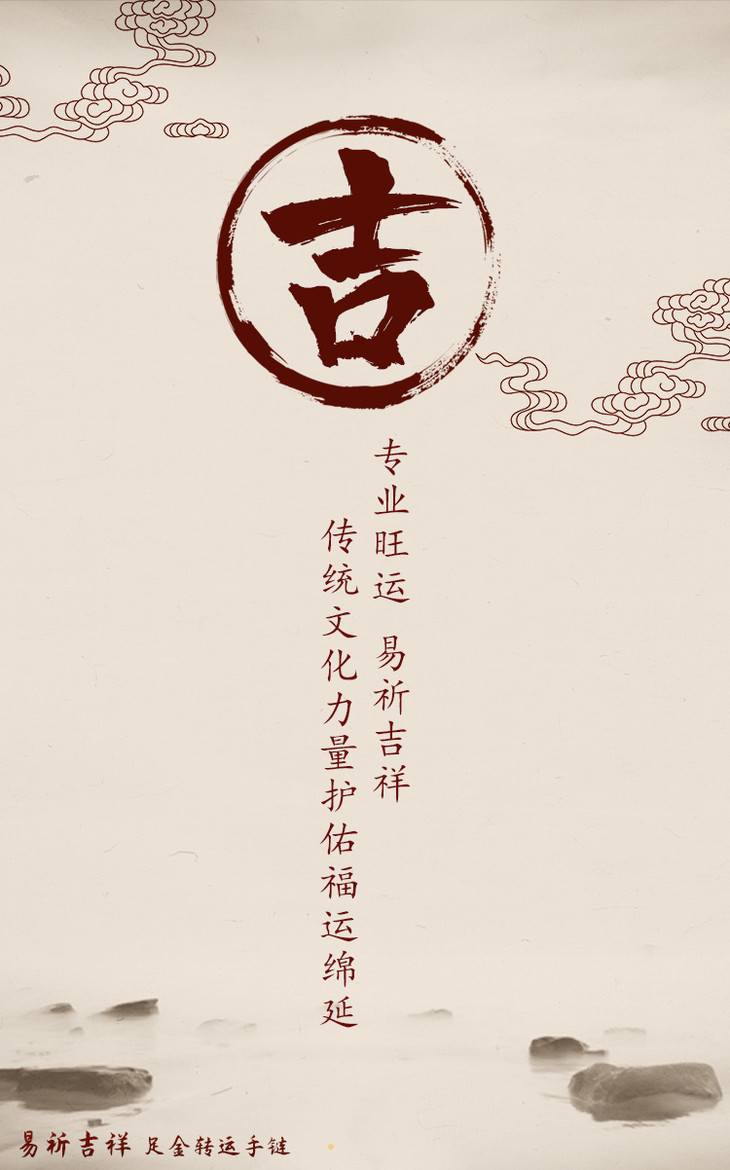 吉
专业旺运 易祈吉祥
传统文化力量护佑福运绵延
易祈吉祥 足金转运手链